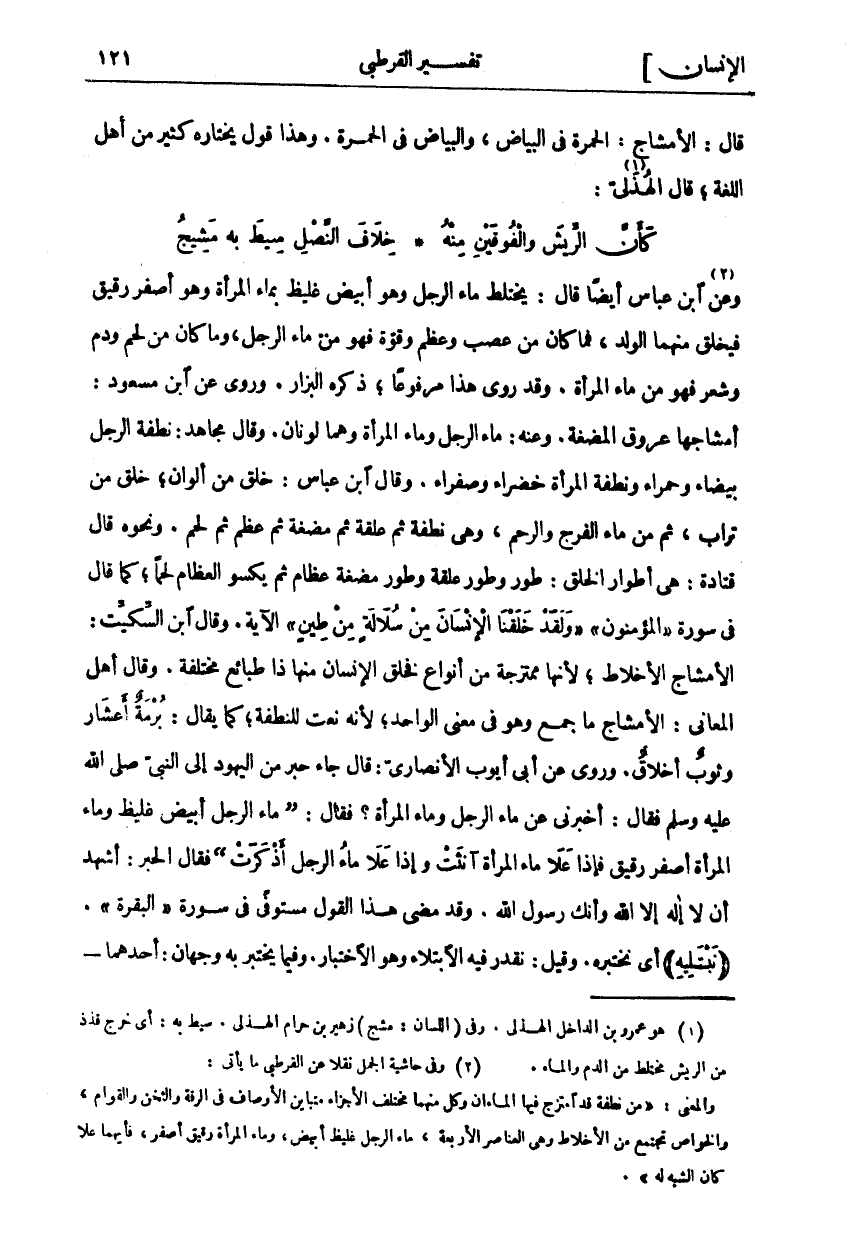 الإنسان ] تفسير القرطبي ١٢١
قال : الأمشاج : الحمرة فى البياض ، والبياض فى الحمرة . وهذا قول يختاره كثير من أهل
اللغة ؛ قال الهُذَلىّ (١) :
كَأَنَّ الرِّيشَ والْفُوقَيْنِ مِنْهُ * خِلَافَ النَّصْلِ سِيطَ به مَشِيجُ
وعن (٢) ٱبن عباس أيضًا قال : يختلط ماء الرجل وهو أبيض غليظ بماء المرأة وهو أصفر رقيق
فيخلق منهما الولد ، فما كان من عصب وعظم وقوّة فهو من ماء الرجل ، وما كان من لحم ودم
وشعر فهو من ماء المرأة . وقد روى هذا مرفوعًا ؛ ذكره البزار . وروى عن ٱبن مسعود :
أمشاجها عروق المضغة . وعنه : ماء الرجل وماء المرأة وهما لونان . وقال مجاهد : نطفة الرجل
بيضاء وحمراء ونطفة المرأة خضراء وصفراء . وقال ٱبن عباس : خلق من ألوان ؛ خلق من
تراب ، ثم من ماء الفرج والرحم ، وهى نطفة ثم علقة ثم مضغة ثم عظم ثم لحم . ونحوه قال
قتادة : هى أطوار الخلق : طور وطور علقة وطور مضغة عظام ثم يكسو العظام لحمًا ؛ كما قال
فى سورة «المؤمنون» «وَلَقَدْ خَلَقْنَا الْإِنْسَانَ مِنْ سُلَالَةٍ مِنْ طِينٍ» الآية . وقال ٱبن السِّكِّيت :
الأمشاج الأخلاط ؛ لأنها ممتزجة من أنواع فخلق الإنسان منها ذا طبائع مختلفة . وقال أهل
المعانى : الأمشاج ما جمع وهو فى معنى الواحد ؛ لأنه نعت للنطفة ؛ كما يقال : بُرْمَةٌ أَعشَار
وثوبٌ أخلاقٌ . وروى عن أبى أيوب الأنصارىّ : قال جاء حبر من اليهود إلى النبىّ صلى الله
عليه وسلم فقال : أخبرنى عن ماء الرجل وماء المرأة ؟ فقال : ” ماء الرجل أبيض غليظ وماء
المرأة أصفر رقيق فإذا عَلَا ماء المرأة آنَثَتْ و إذا عَلَا ماءُ الرجل أَذْكَرَتْ “ فقال الحبر : أشهد
أن لا إله إلا الله وأنك رسول الله . وقد مضى هذا القول مستوفًى فى سورة « البقرة » .
(نَبْتَلِيهِ) أى نختبره . وقيل : نقدر فيه الٱبتلاء وهو الٱختبار . وفيما يختبر به وجهان : أحدهما —
(١) هو عمرو بن الداخل الهذلى . وفى (اللسان : مشج) زهير بن حرام الهذلى . سيط به : أى خرج قذذ
من الريش مختلط من الدم والماء . (٢) وفى حاشية الجمل نقلا عن القرطبي ما يأتى :
والمعنى : «من نطفة قد ٱمتزج فيها الماءان وكل منهما مختلف الأجزاء متباين الأوصاف فى الرقة والثخن والقوام ،
والخواص تجتمع من الأخلاط وهى العناصر الأربعة ، ماء الرجل غليظ أبيض ، وماء المرأة رقيق أصفر ، فأيهما علا
كان الشبه له » .